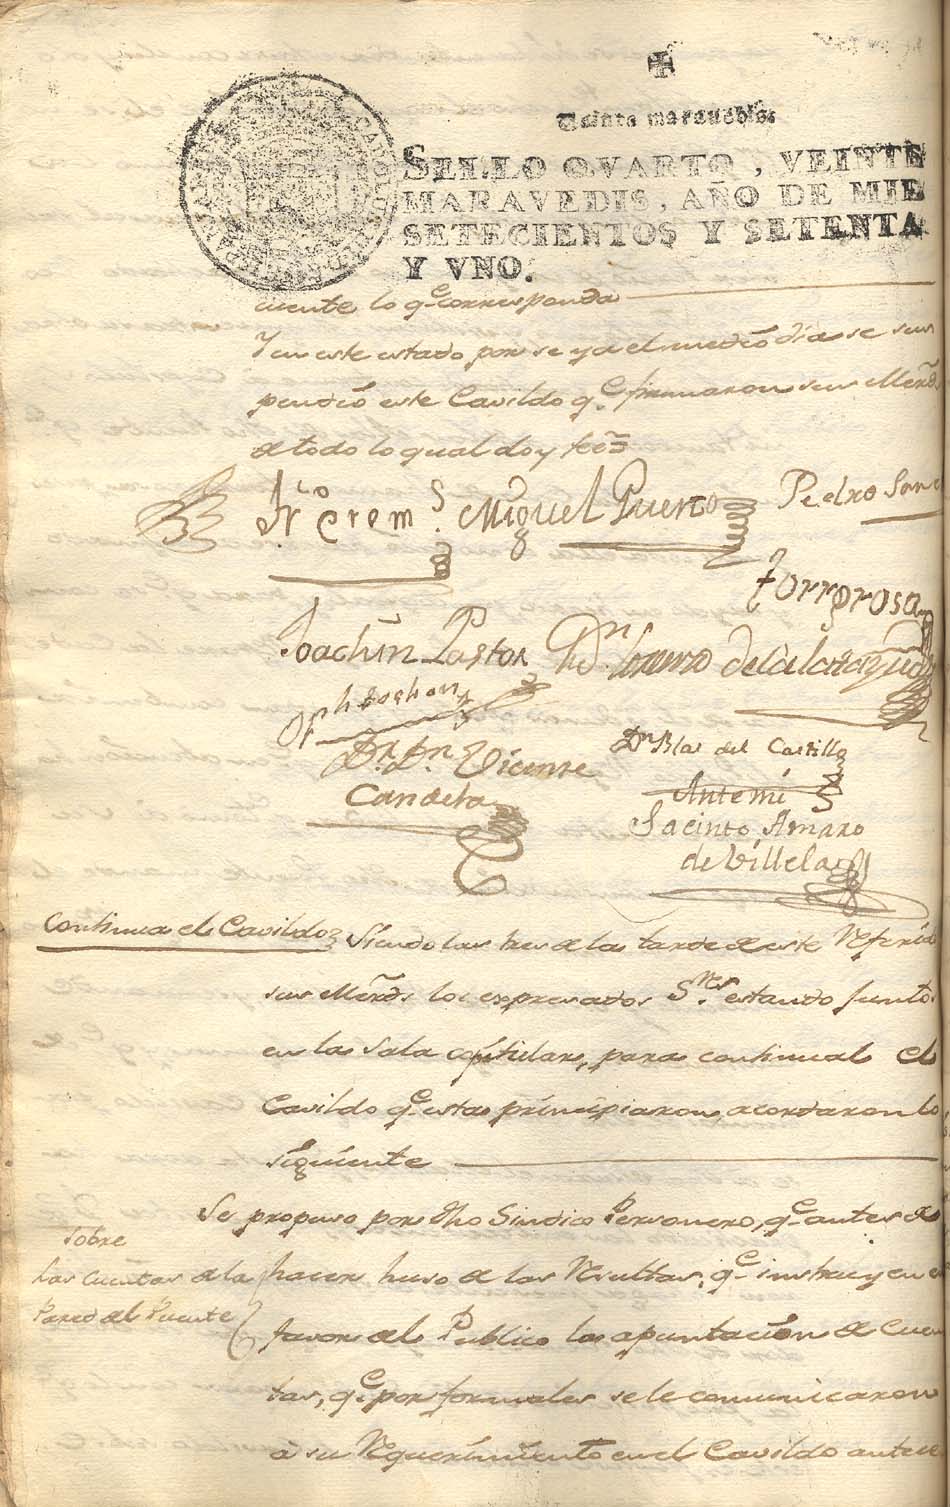 Veinte maravedis.
SELLO QVARTO, VEINTE
MARAVEDIS, AÑO DE MIL
SETECIENTOS Y SETENTA
Y VNO.
cuente lo qe. corresponda
Y en este estado por ser ya el medio dia se sus
pendio este Cavildo qe. firmaron sus Mercds.
de todo lo qual doy fee=
Miguel Puerto
Pedro Sanz
torrerosa
Joachin Pastor
Dn. Blas del Castillo
Dr. Dn. Vicente
Candela
Antemi
Jacinto Amaro
de Villela
Continua el Cavildo
Siendo las tres de la tarde de este Referido
sus Mercds. los expresados Sres. estando Juntos
en la Sala capitular, para continual el
Cavildo qe. esta principiaron, acordaron lo
siguiente
Sobre
las Cuentas de la
Pared del Puente
Se propuso por dho Sindico Personero, qe. antes de
hacer huso de las Resultas, qe. instruyen en
favor del Publico las apuntacion de Cuen
tas, qe. por formales se le comunicaron
a su Requerimiento en el Cavildo antece